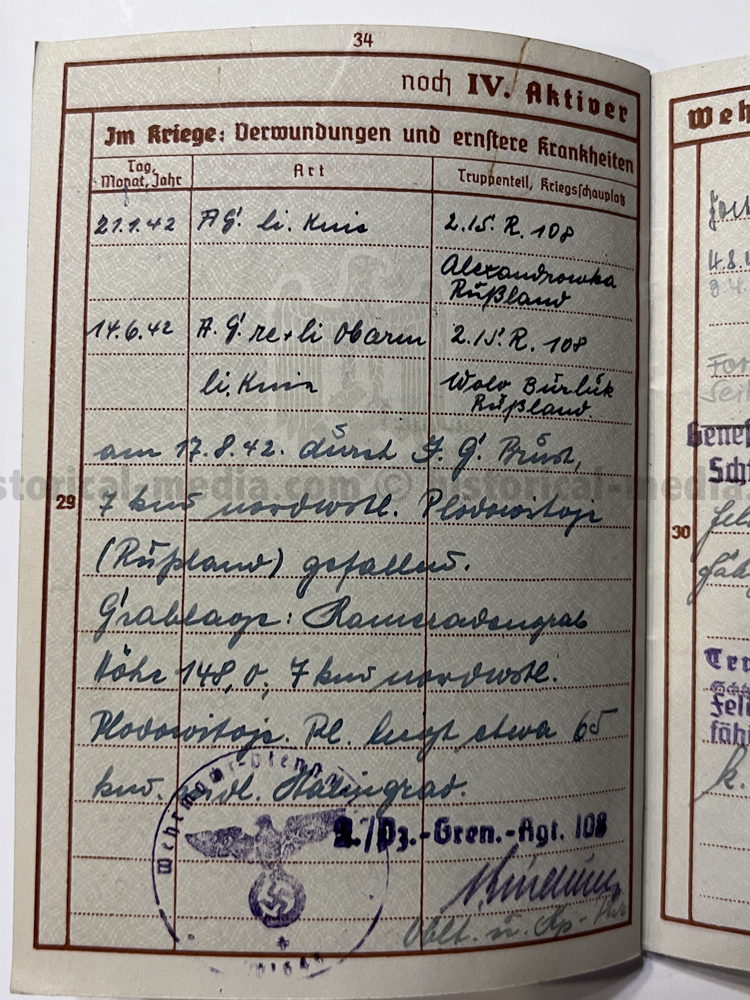 34
noch IV. Aktiver
Im Kriege: Verwundungen und ernstere Krankheiten
Tag, Monat, Jahr
Art
Truppenteil, Kriegsschauplatz
21.1.42 AG. li. Knie 2.IS. R. 108
Alexandrowka
Rußland
14.6.42 A.G. re + li Obarm 2.IS. R. 108
li. Knie Wolv Burluk
Rußland
am 17.8.42. durch I. G. Brust,
29
7 km nordwstl. Plodowitoje
(Rußland) gefallen.
Grablage: Kameradengrab
Höhe 148,0, 7 km nordwstl.
Plodowitoje. Pl. liegt etwa 65
km. südl. Stalingrad.
2./Pz.-Gren.-Rgt. 108
Oblt. u. Kp.
historical-media.com © historical-media
Weh
30